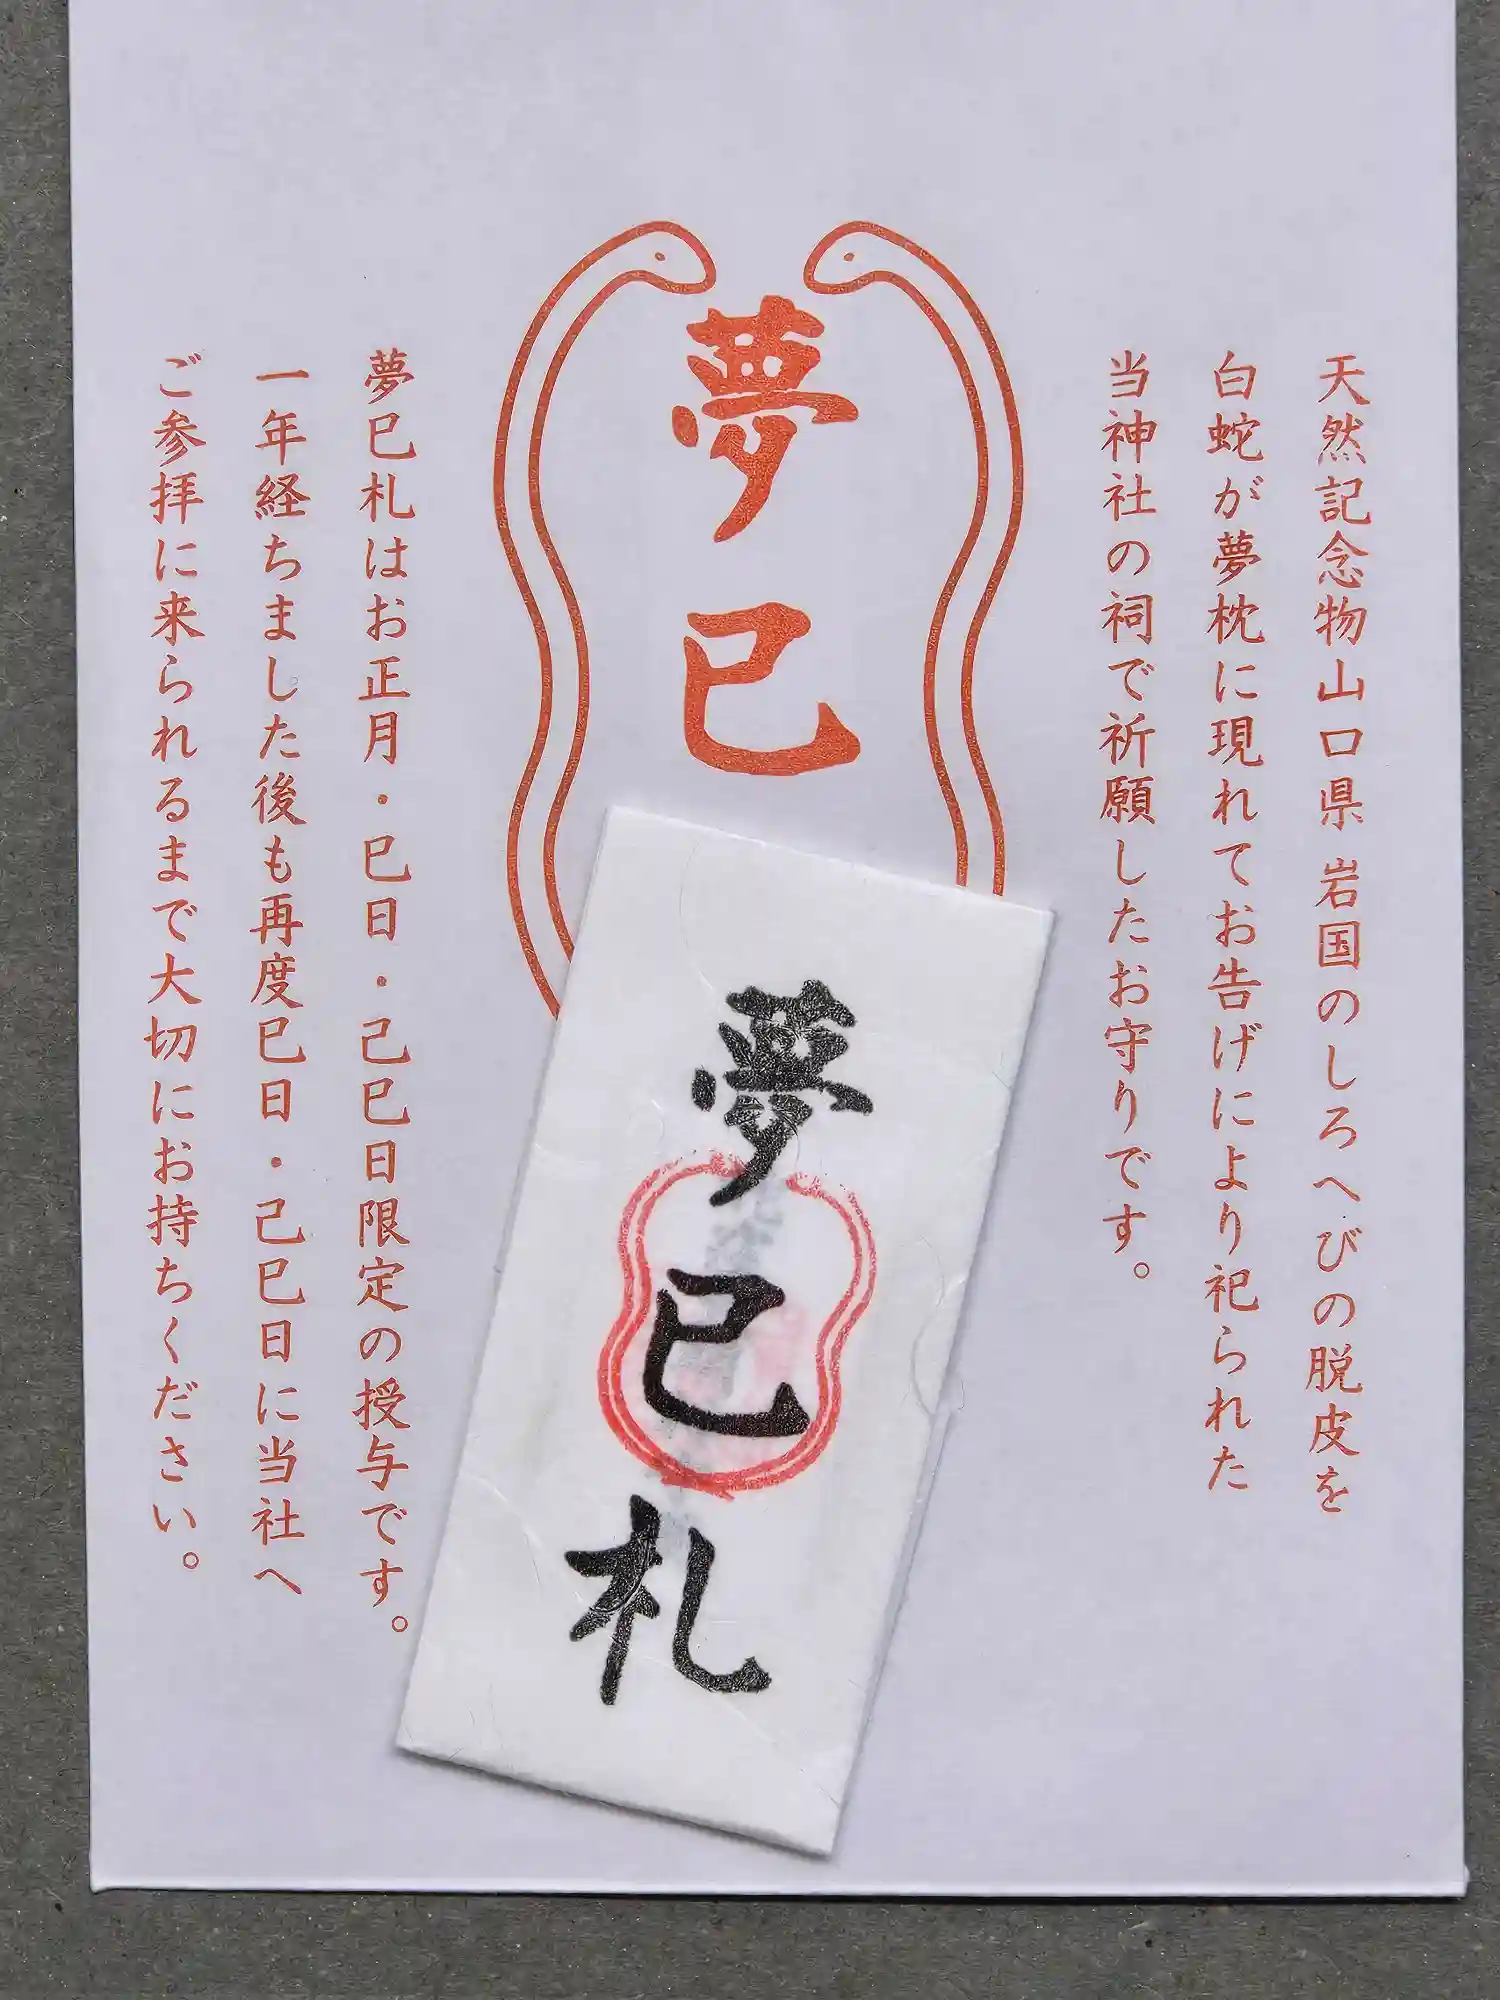 天然記念物山口県 岩国のしろへびの脱皮を
白蛇が夢枕に現れてお告げにより祀られた
当神社の祠で祈願したお守りです。
夢巳
夢巳札
夢巳札はお正月・巳日・己巳日限定の授与です。
一年経ちました後も再度巳日・己巳日に当社へ
ご参拝に来られるまで大切にお持ちください。